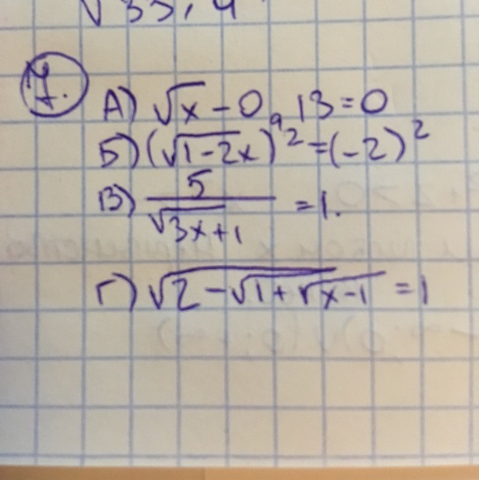 √35,4
7.
А) √x - 0,13 = 0
Б) (√1-2x)² = (-2)²
В) 5/√3x+1 = 1.
Г) √2-√1+√x-1 = 1